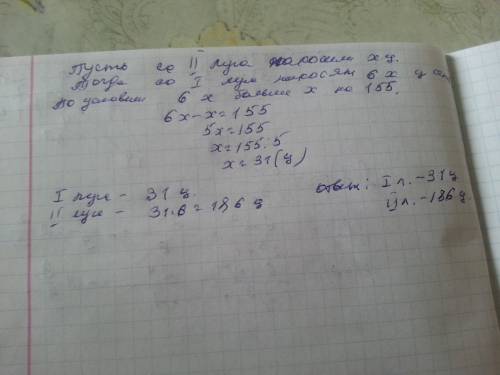 Пусть со II луга накосили х ц.
Тогда со I луга накосят 6 х ц
По условию 6 х больше х на 155.
6х-х=155
5х=155
х=155:5
х=31(ц)
I луг - 31 ц.
II луг - 31.6=186 ц
Ответ: I л. -31ц
II л. -186 ц.